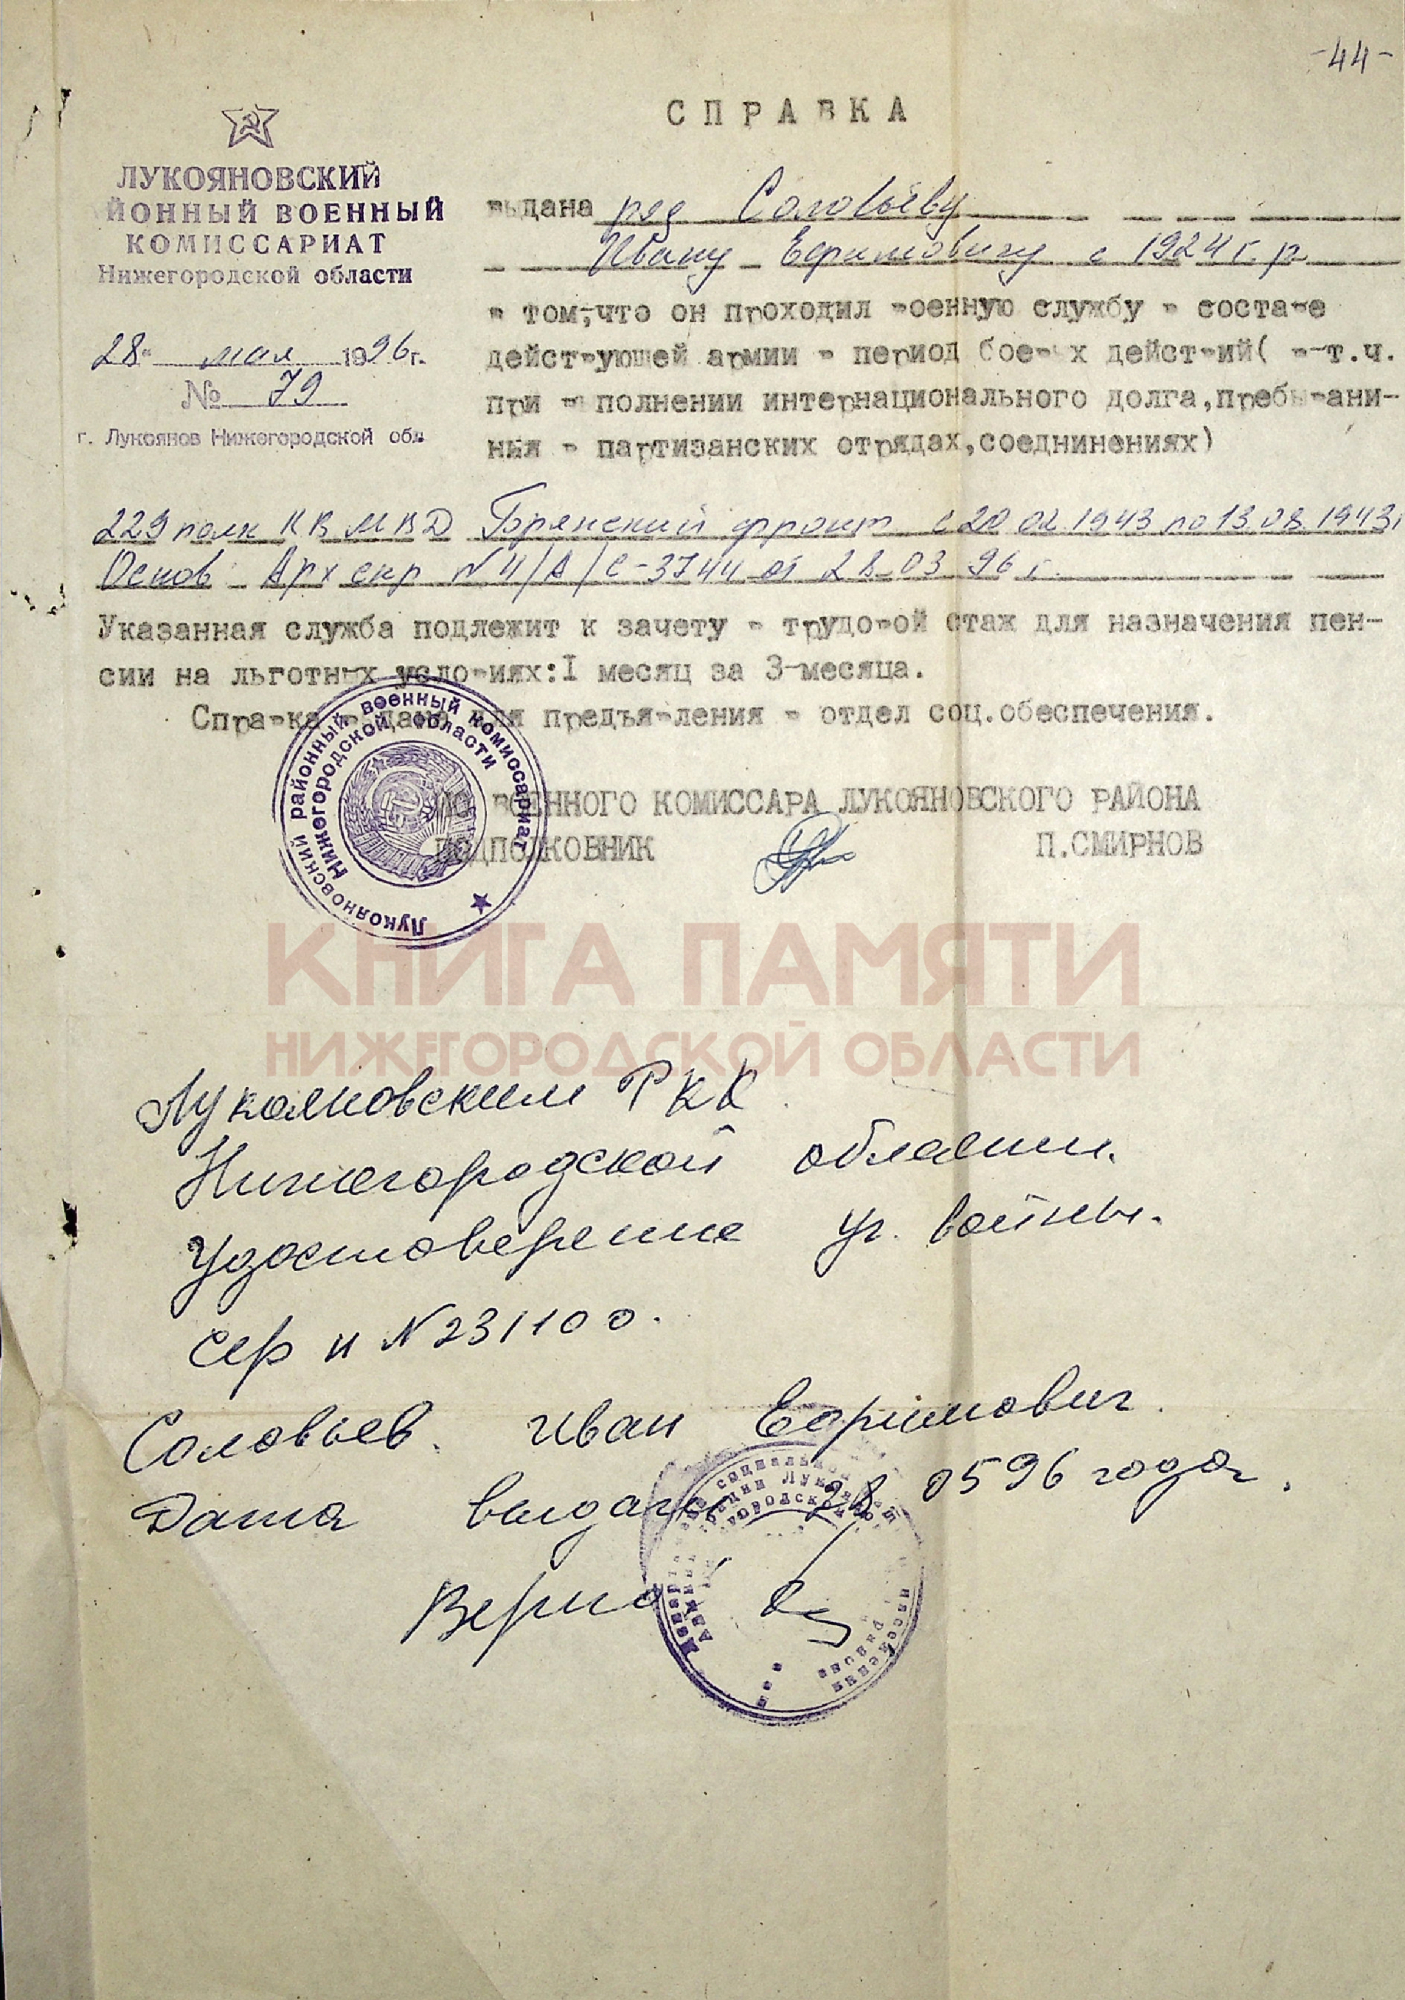 -44-
СПРАВКА
ЛУКОЯНОВСКИЙ
ЙОННЫЙ ВОЕННЫЙ
КОМИССАРИАТ
Нижегородской области
28 мая 1996г.
№ 79
г. Лукоянов Нижегородской обл
выдана ряд Соловьёву
Ивану Ефимовичу с 1924 г.р
в том,что он проходил военную службу в составе
действующей армии в период боевых действий( в-т.ч.
при выполнении интернационального долга,пребывани-
ныя в партизанских отрядах,соеднинениях)
229 полк КВ МВД фронт с 20 02 1943 по 13.08.1943г
Основ Арх скр №4/А/С-3744 от 28 03 96 г.
Указанная служба подлежит к зачету в трудовой стаж для назначения пен-
сии на льготных условиях:I месяц за 3-месяца.
Справка выдана для предъявления в отдел соц.обеспечения.
ВОЕННОГО КОМИССАРА ЛУКОЯНОВСКОГО РАЙОНА
ПОДПОЛКОВНИК П.СМИРНОВ
Лукояновский районный военный комиссариат
Нижегородской области
КНИГА ПАМЯТИ
НИЖЕГОРОДСКОЙ ОБЛАСТИ
Лукояновским РКК.
Нижегородской области.
Удостоверение уч. войны.
сер и №231100.
Соловьев. Иван Ефимович.
Дата выдачи 28 0596 года.
Верно